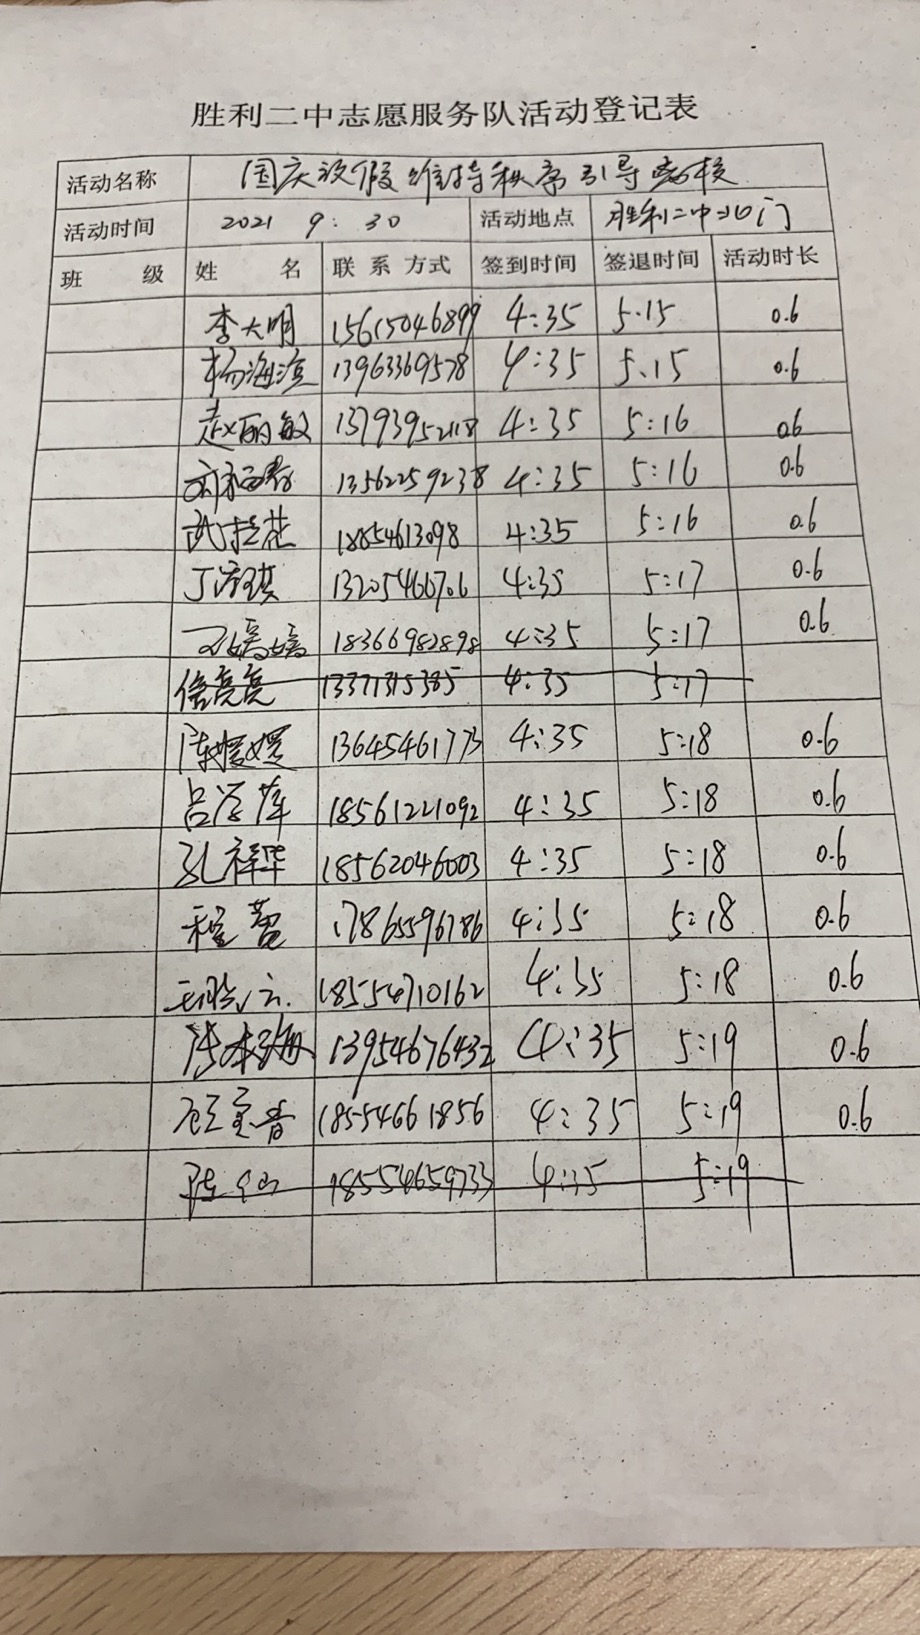 胜利二中志愿服务队活动登记表
活动名称 国庆放假维持秩序引导离校
活动时间 2021 9:30 活动地点 胜利二中北门
班 级 姓 名 联系方式 签到时间 签退时间 活动时长
李大明 15615046899 4:35 5.15 0.6
杨海滨 13963369578 4:35 5.15 0.6
赵丽敏 4:35 5:16 0.6
13562259238 4:35 5:16 0.6
武桂花 18854613098 4:35 5:16 0.6
13205466706 4:35 5:17 0.6
18366982898 4:35 5:17 0.6
信亮亮 13371315385 4:35 5:17
陈媛媛 13645461773 4:35 5:18 0.6
吕学萍 18561221092 4:35 5:18 0.6
孔祥华 18562046003 4:35 5:18 0.6
程蕾 17865596786 4:35 5:18 0.6
18554710162 4:35 5:18 0.6
13954676432 4:35 5:19 0.6
18554661856 4:35 5:19 0.6
18554659733 4:35 5:19